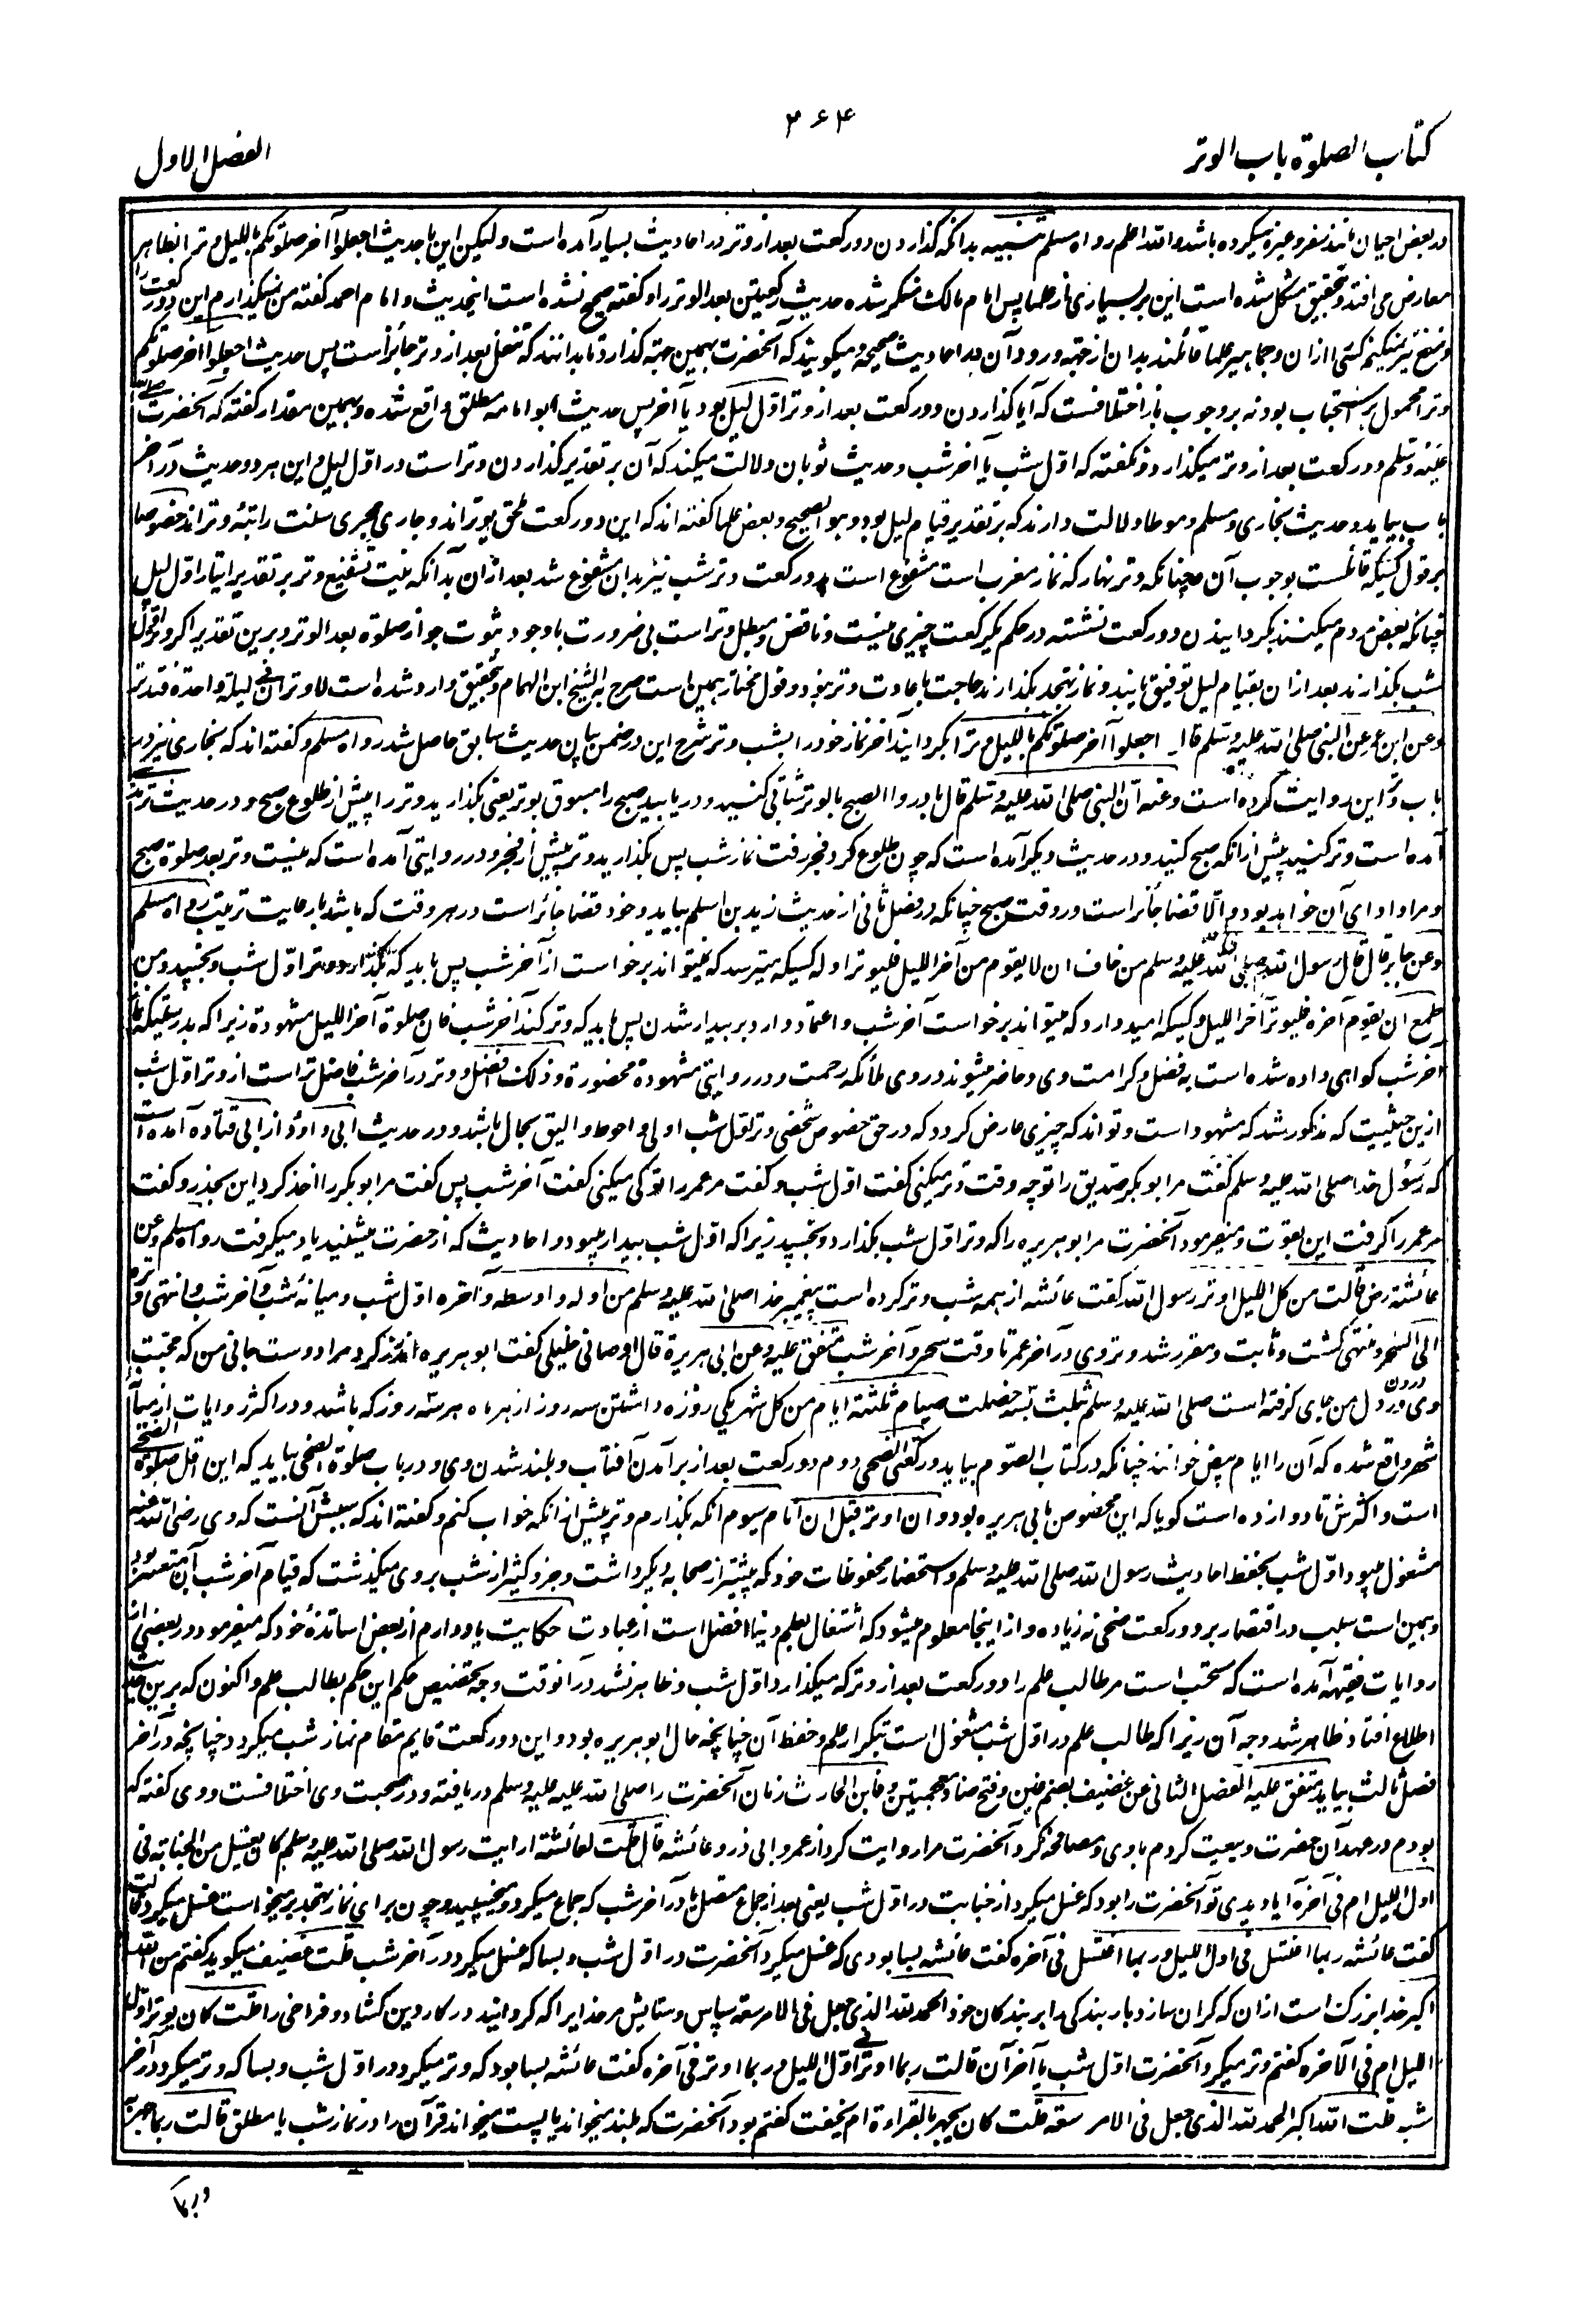 ۳۶۴
کتاب الصلوة باب الوتر
الفصل الاول
در بعض احیان مانند سفر وغیره میکرده باشد والله اعلم رواه مسلم تنبیه بدانکه گذاردن دو رکعت بعد از وتر در احادیث بسیار آمده است ولیکن این با حدیث اجعلوا آخر صلوتکم باللیل وترا بظاهر
معارض می افتد وتحقیق مشکل شده است این بر بسیاری از علما پس امام مالک منکر شده حدیث رکعتین بعد الوتر را وگفته صحیح نشده است اینحدیث وامام احمد گفته من نمیگذارم این دو رکعت را
ومنع نیز نمیکنم کسی را ازان وجماهیر علما قائلند بدان از جهة ورود آن در احادیث صحیحه ومیگویند که آنحضرت بهمین جهة گذارد تا بدانند که تنفل بعد از وتر جائز است پس حدیث اجعلوا آخر صلوتکم
وترا محمول بر استحباب بود نه بر وجوب باز اختلافست که آیا گذاردن دو رکعت بعد از وتر اول لیل بود یا آخر پس حدیث ابو امامه مطلق واقع شده وبهمین مقدار گفته که آنحضرت صلی الله
علیه وسلم دو رکعت بعد از وتر میگذارد ونگفته که اول شب یا آخر شب وحدیث ثوبان دلالت میکند که آن بر تقدیر گذاردن وتر است در اول لیل واین هر دو حدیث در آخر
باب بیاید وحدیث بخاری ومسلم وموطا دلالت دارند که بر تقدیر قیام لیل بود وهو الصحیح وبعض علما گفته اند که این دو رکعت ملحق بوتر اند وجاری مجری سنت راتبه وتر اند خصوصا
بر قول کسیکه قائلست بوجوب آن همچنانکه وتر نهار که نماز مغرب است مشفوع است بدو رکعت وتر شب نیز بدان مشفوع شد بعد ازان بدانکه نیت تشفیع وتر بر تقدیر ایتار اول لیل
چنانکه بعض مردم میکنند بگردانیدن دو رکعت نشسته در حکم یک رکعت چیزی نیست وناقض ومبطل وتر است بی ضرورت با وجود ثبوت جواز صلوة بعد الوتر وبرین تقدیر اگر وتر اول
شب بگذارند بعد ازان بقیام لیل توفیق یابند ونماز تهجد بگذارند حاجت باعادت وتر نبود وقول مختار همین است صرح به الشیخ ابن الهمام وبتحقیق وارد شده است لا وتران فی لیلة واحدة فتدبر
وعن ابن عمر عن النبی صلی الله علیه وسلم قال اجعلوا آخر صلوتکم باللیل وترا بگردانید آخر نماز خود را بشب وتر شرح این در ضمن بیان حدیث سابق حاصل شد رواه مسلم وگفته اند که بخاری نیز در
باب وتر این روایت کرده است وعنه ان النبی صلی الله علیه وسلم قال بادروا الصبح بالوتر شتابی کنید ودریابید صبح را مسبوق بوتر یعنی بگذارید وتر را پیش از طلوع صبح ودر حدیث ترمذی
آمده است وتر کنید پیش ازانکه صبح کنید ودر حدیث دیگر آمده است که چون طلوع کرد فجر رفت نماز شب پس بگذارید وتر پیش از فجر ودر روایتی آمده است که نیست وتر بعد صلوة صبح
ومراد ادای آن خواهد بود والا قضا جائز است در وقت صبح چنانکه در فصل ثانی از حدیث زید بن اسلم بیاید وخود قضا جائز است در هر وقت که باشد با رعایت ترتیب رواه مسلم
وعن جابر قال قال رسول الله صلی الله علیه وسلم من خاف ان لا یقوم من آخر اللیل فلیوتر اوله کسیکه میترسد که نمیتواند برخواست از آخر شب پس باید که بگذارد وتر اول شب وبخسپد ومن
طمع ان یقوم آخره فلیوتر آخر اللیل وکسیکه امید دارد که میتواند برخواست آخر شب واعتماد دارد بر بیدار شدن پس باید که وتر کند آخر شب فان صلوة آخر اللیل مشهودة زیرا که بدرستیکه نماز
آخر شب گواهی داده شده است به فضل وکرامت وی وحاضر میشوند در وی ملائکه رحمت ودر روایتی مشهودة محضورة وذلک افضل ووتر در آخر شب فاضل تر است از وتر اول شب
ازین حیثیت که مذکور شد که مشهود است وتواند که چیزی عارض گردد که در حق خصوص شخصی وتر اول شب اولی واحوط والیق بحال باشد ودر حدیث ابی داود از ابی قتاده آمده است
که رسول خدا صلی الله علیه وسلم گفت مر ابو بکر صدیق را تو چه وقت وتر میکنی گفت اول شب وگفت مر عمر را تو کی میکنی گفت آخر شب پس گفت مر ابو بکر را اخذ کرد این بحذر وگفت
مر عمر را گرفت این بقوت ومیفرمود آنحضرت مر ابو هریره را که وتر اول شب بگذارد وبخسپد زیرا که اول شب بیدار میبود واحادیث که از حضرت میشنید یاد میگرفت رواه مسلم وعن
عائشة رض قالت من کل اللیل اوتر رسول الله گفت عائشه از همه شب وتر کرده است پیغمبر خدا صلی الله علیه وسلم من اوله واوسطه وآخره اول شب ومیانهٔ شب وآخر شب وانتهی وتره
الی السحر ومنتهی گشت وثابت ومقرر شد وتر وی در آخر عمر تا وقت سحر وآخر شب متفق علیه وعن ابی هریرة قال اوصانی خلیلی گفت ابو هریره اندرز کرد مرا دوست جانی من که محبت
وی درون دل من جای گرفته است صلی الله علیه وسلم بثلث بسه خصلت صیام ثلثة ایام من کل شهر یکی روزه داشتن سه روز از هر ماه هر سه روز که باشد ودر اکثر روایات از میان
شهر واقع شده که آن را ایام بیض خوانند چنانکه در کتاب الصوم بیاید ورکعتی الضحی دوم دو رکعت بعد از برآمدن آفتاب وبلند شدن وی ودر باب صلوة الضحی بیاید که این اقل صلوة الضحی
است واکثرش تا دوازده است گویا که این مخصوص بابی هریره بود وان اوتر قبل ان انام سیوم آنکه بگذارم وتر پیش ازانکه خواب کنم وگفته اند که سببش آنست که وی رضی الله عنه
مشغول میبود اول شب بحفظ احادیث رسول الله صلی الله علیه وسلم واستحضار محفوظات خود که بیشتر از صحابه دیگر داشت وجزو کثیر از شب بر وی میگذشت که قیام آخر شب آن متعسر بود
وهمین است سبب در اقتصار بر دو رکعت ضحی نه زیاده واز اینجا معلوم میشود که اشتغال بعلم دینا افضل است از عبادت حکایت یاد دارم از بعض اساتذهٔ خود که میفرمود در بعضی از
روایات فقیهه آمده است که مستحب است مر طالب علم را دو رکعت بعد از وتر که میگذارد اول شب وظاهر نشد در انوقت وجه تخصیص حکم این حکم بطالب علم واکنون که برین حدیث
اطلاع افتاد ظاهر شد وجه آن زیرا که طالب علم در اول شب مشغول است بتکرار علم وحفظ آن چنانچه حال ابو هریره بود واین دو رکعت قایم مقام نماز شب میگردد چنانچه در آخر
فصل ثالث بیاید متفق علیه الفصل الثانی عن غضیف بضم غین وفتح ضاد معجمتین وفا بن الحارث زمان آنحضرت را صلی الله علیه علیه وسلم دریافته ودر صحبت وی اختلافست ووی گفته که
بودم در عهد آن حضرت وبیعت کردم با وی ومصافحه کرد آنحضرت مرا روایت کرد از عمر وابی ذر وعائشه قال قلت لعائشة ارایت رسول الله صلی الله علیه وسلم کان یغتسل من الجنابة فی
اول اللیل ام فی آخره آیا دیدی تو آنحضرت را بود که غسل میکرد از جنابت در اول شب یعنی بعد از جماع متصل یا در آخر شب که جماع میکرد ومیخسپید وچون برای نماز تهجد بر میخواست غسل میکرد قالت
گفت عائشه ربما اغتسل فی اول اللیل وربما اغتسل فی آخره گفت عائشه بسا بودی که غسل میکرد آنحضرت در اول شب وبسا که غسل میکرد در آخر شب قلت غضیف میگوید گفتم من الله
اکبر خدا بزرگ است ازان که گران سازد بار بندگی را بر بندگان خود الحمد لله الذی جعل فی الامر سعة سپاس وستایش مر خدایرا که گردانید در کار دین گشاد وفراخی را قلت کان یوتر اول
اللیل ام فی الآخره گفتم وتر میکرد آنحضرت اول شب یا آخر آن قالت ربما اوتر فی اول اللیل وربما اوتر فی آخره گفت عائشه بسا بود که وتر میکرد در اول شب وبسا که وتر میکرد در آخر
شب قلت الله اکبر الحمد لله الذی جعل فی الامر سعة قلت کان یجهر بالقراءة ام یخفت گفتم بود آنحضرت که بلند میخواند یا پست میخواند قرآن را در نماز شب یا مطلق قالت ربما جهر به
وربما